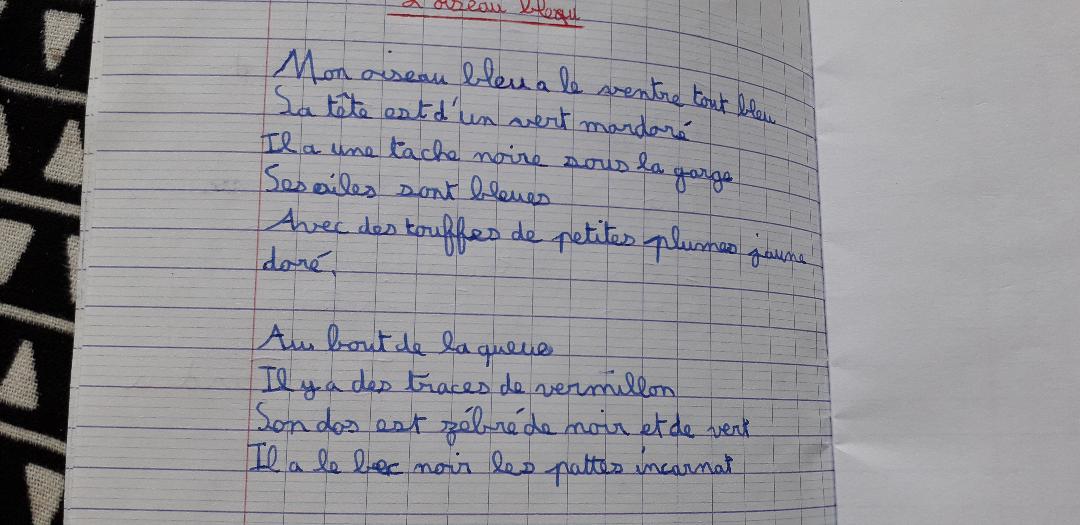 L'oiseau bleu
Mon oiseau bleu a le ventre tout bleu
Sa tête est d'un vert mordoré
Il a une tache noire sous la gorge
Ses ailes sont bleues
Avec des touffes de petites plumes jaune
doré.
Au bout de la queue
Il y a des traces de vermillon
Son dos est zébré de noir et de vert
Il a le bec noir les pattes incarnat